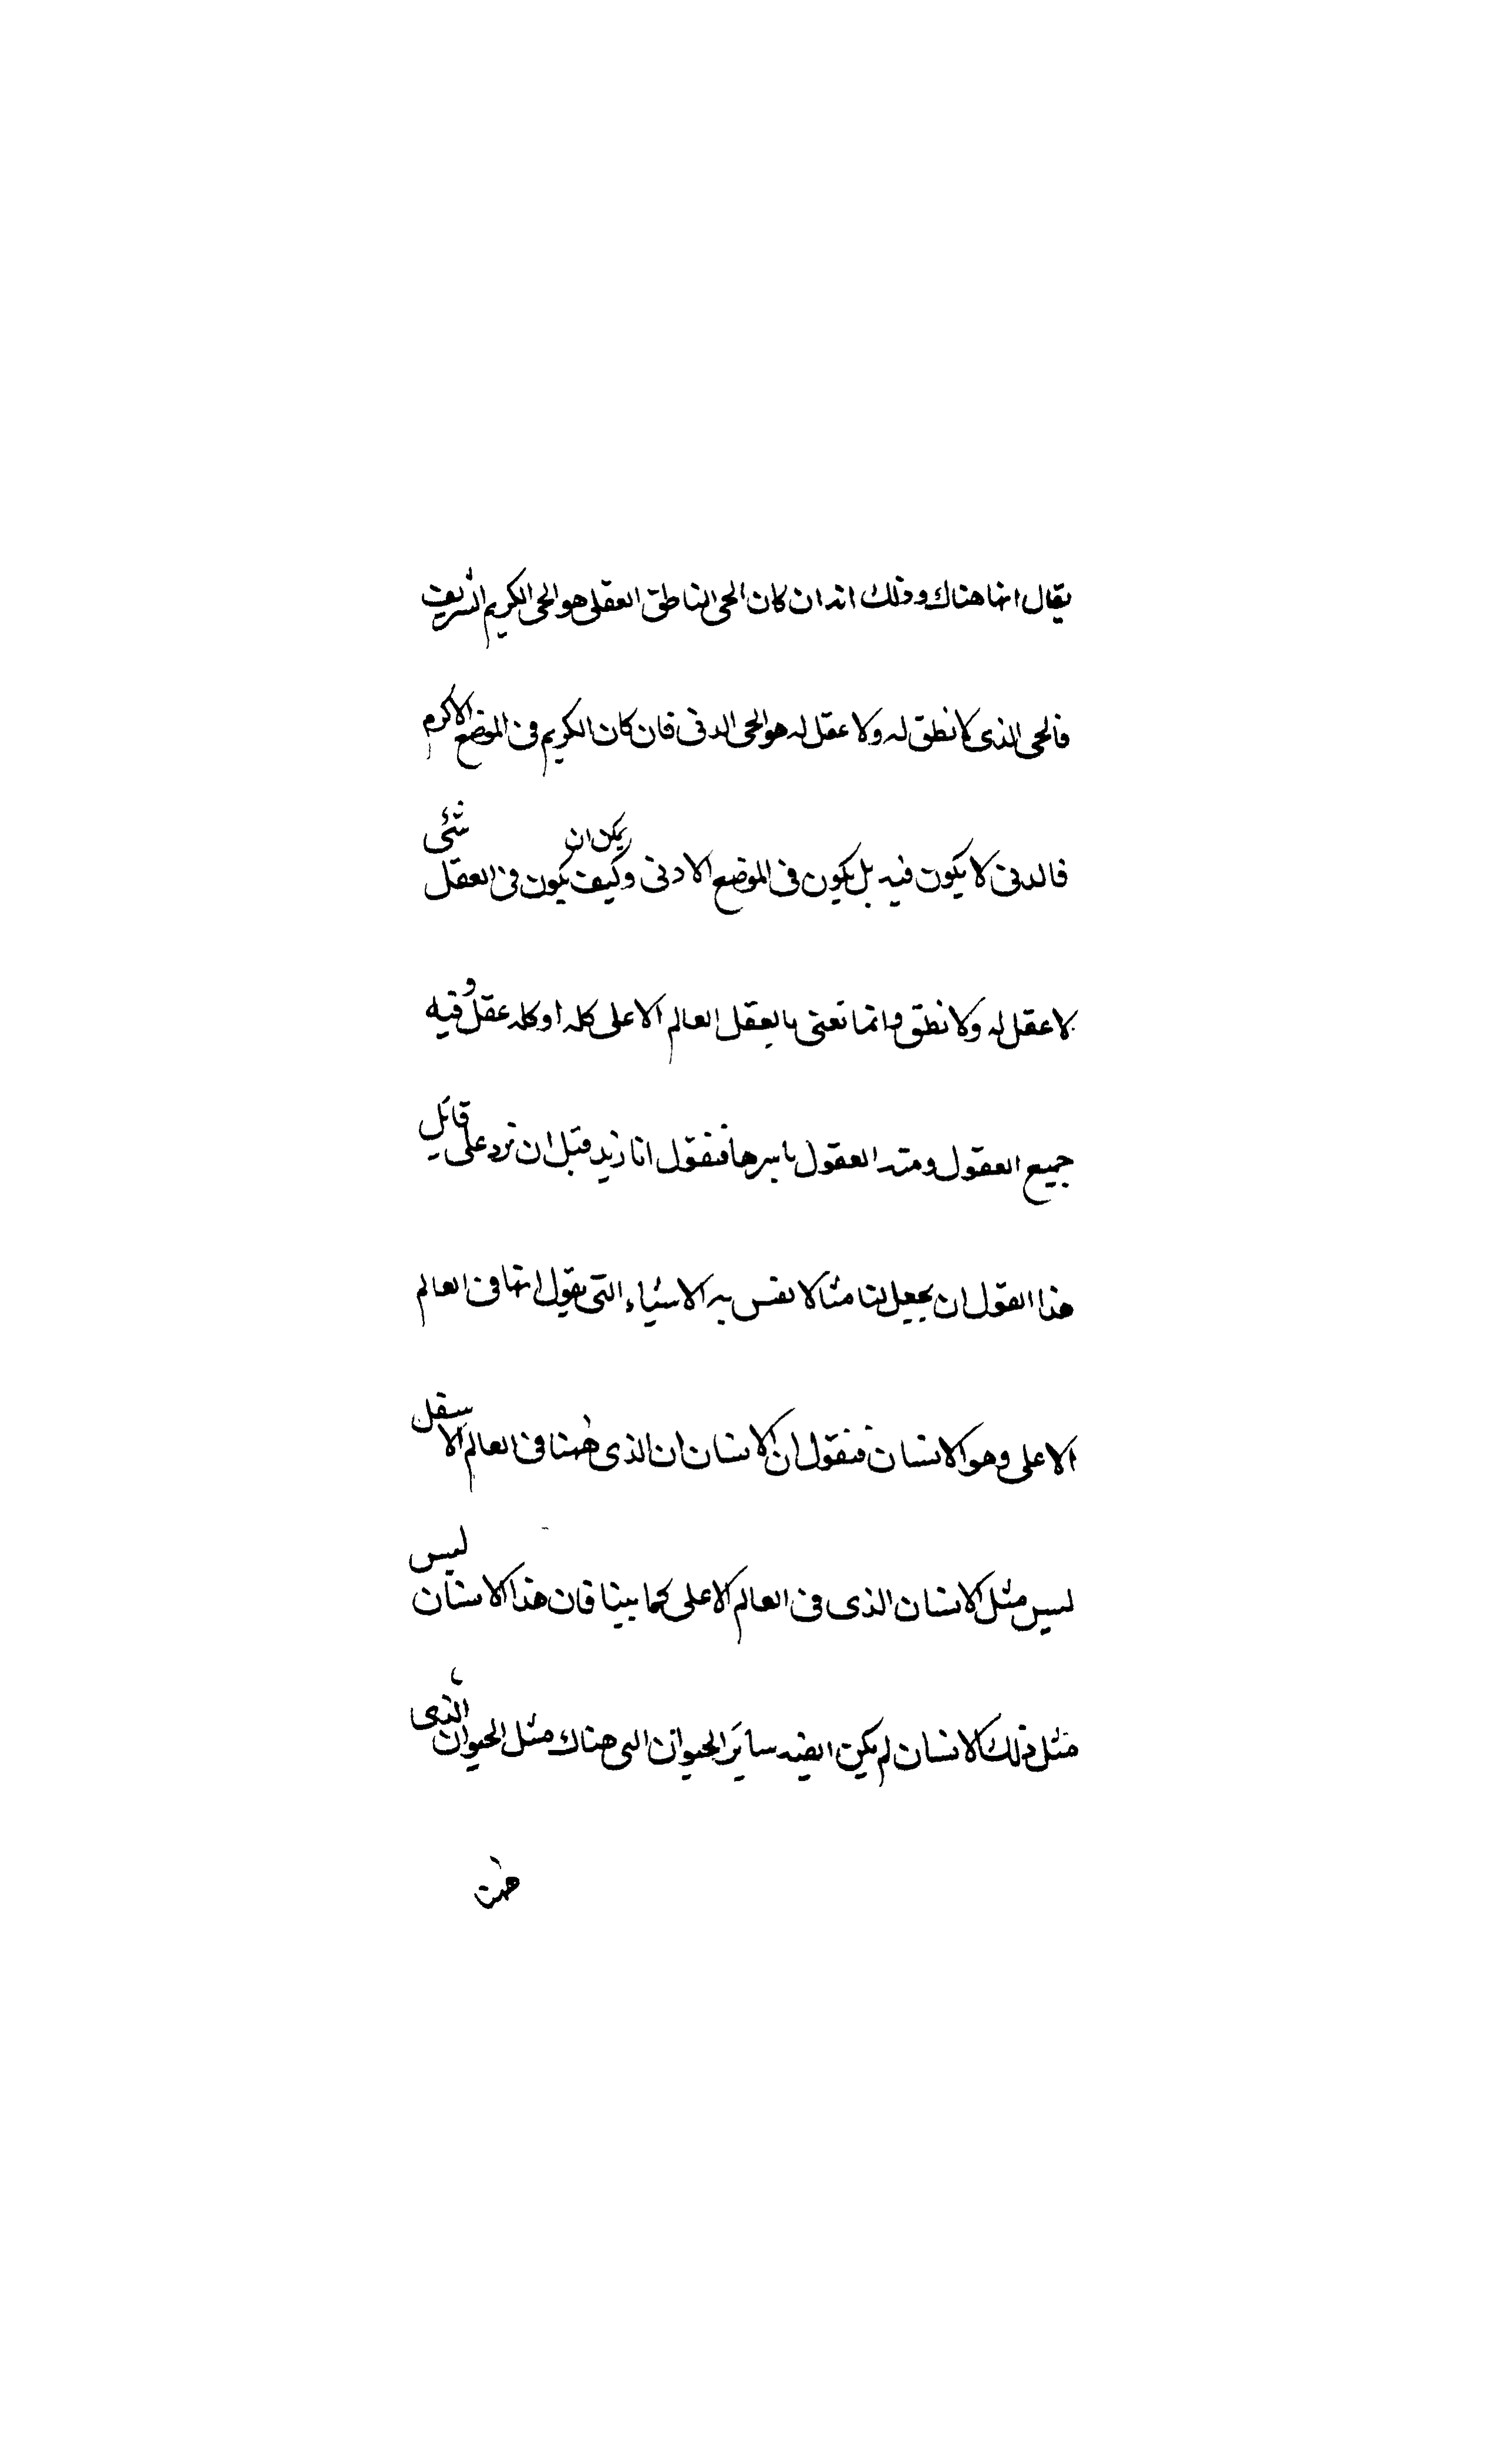 يقال انها هناك وذلك انه ان كان الحى الناطق العقلى هو الحى الكريم الشريف
فالحى الذى لا نطق له ولا عقل له هو الحى الدنى فان كان الكريم فى الموضع الاكرم
فالدنى لا يكون فيه بل يكون فى الموضع الادنى وكيف يمكن ان يكون فى العقل شئى
لا عقل له ولا نطق وانما نعنى بالعقل العالم الاعلى كله اذ كله عقل وفيه
جميع العقول ومنه العقول باسرها فنقول انا نريد قبل ان نرد على قائل
هذا القول ان يجعل لنا مثالا نقس به الاشياء التى نقول انها فى العالم
الاعلى وهو الانسان فنقول ان الانسان ان الذى ههنا فى العالم الاسفل
ليس مثل الانسان الذى فى العالم الاعلى كما بينا فان هذا الانسان ليس
مثل ذلك الانسان لم يكن ايضه سائر الحيوان التى هناك مثل الحيوان الذى
ههنا